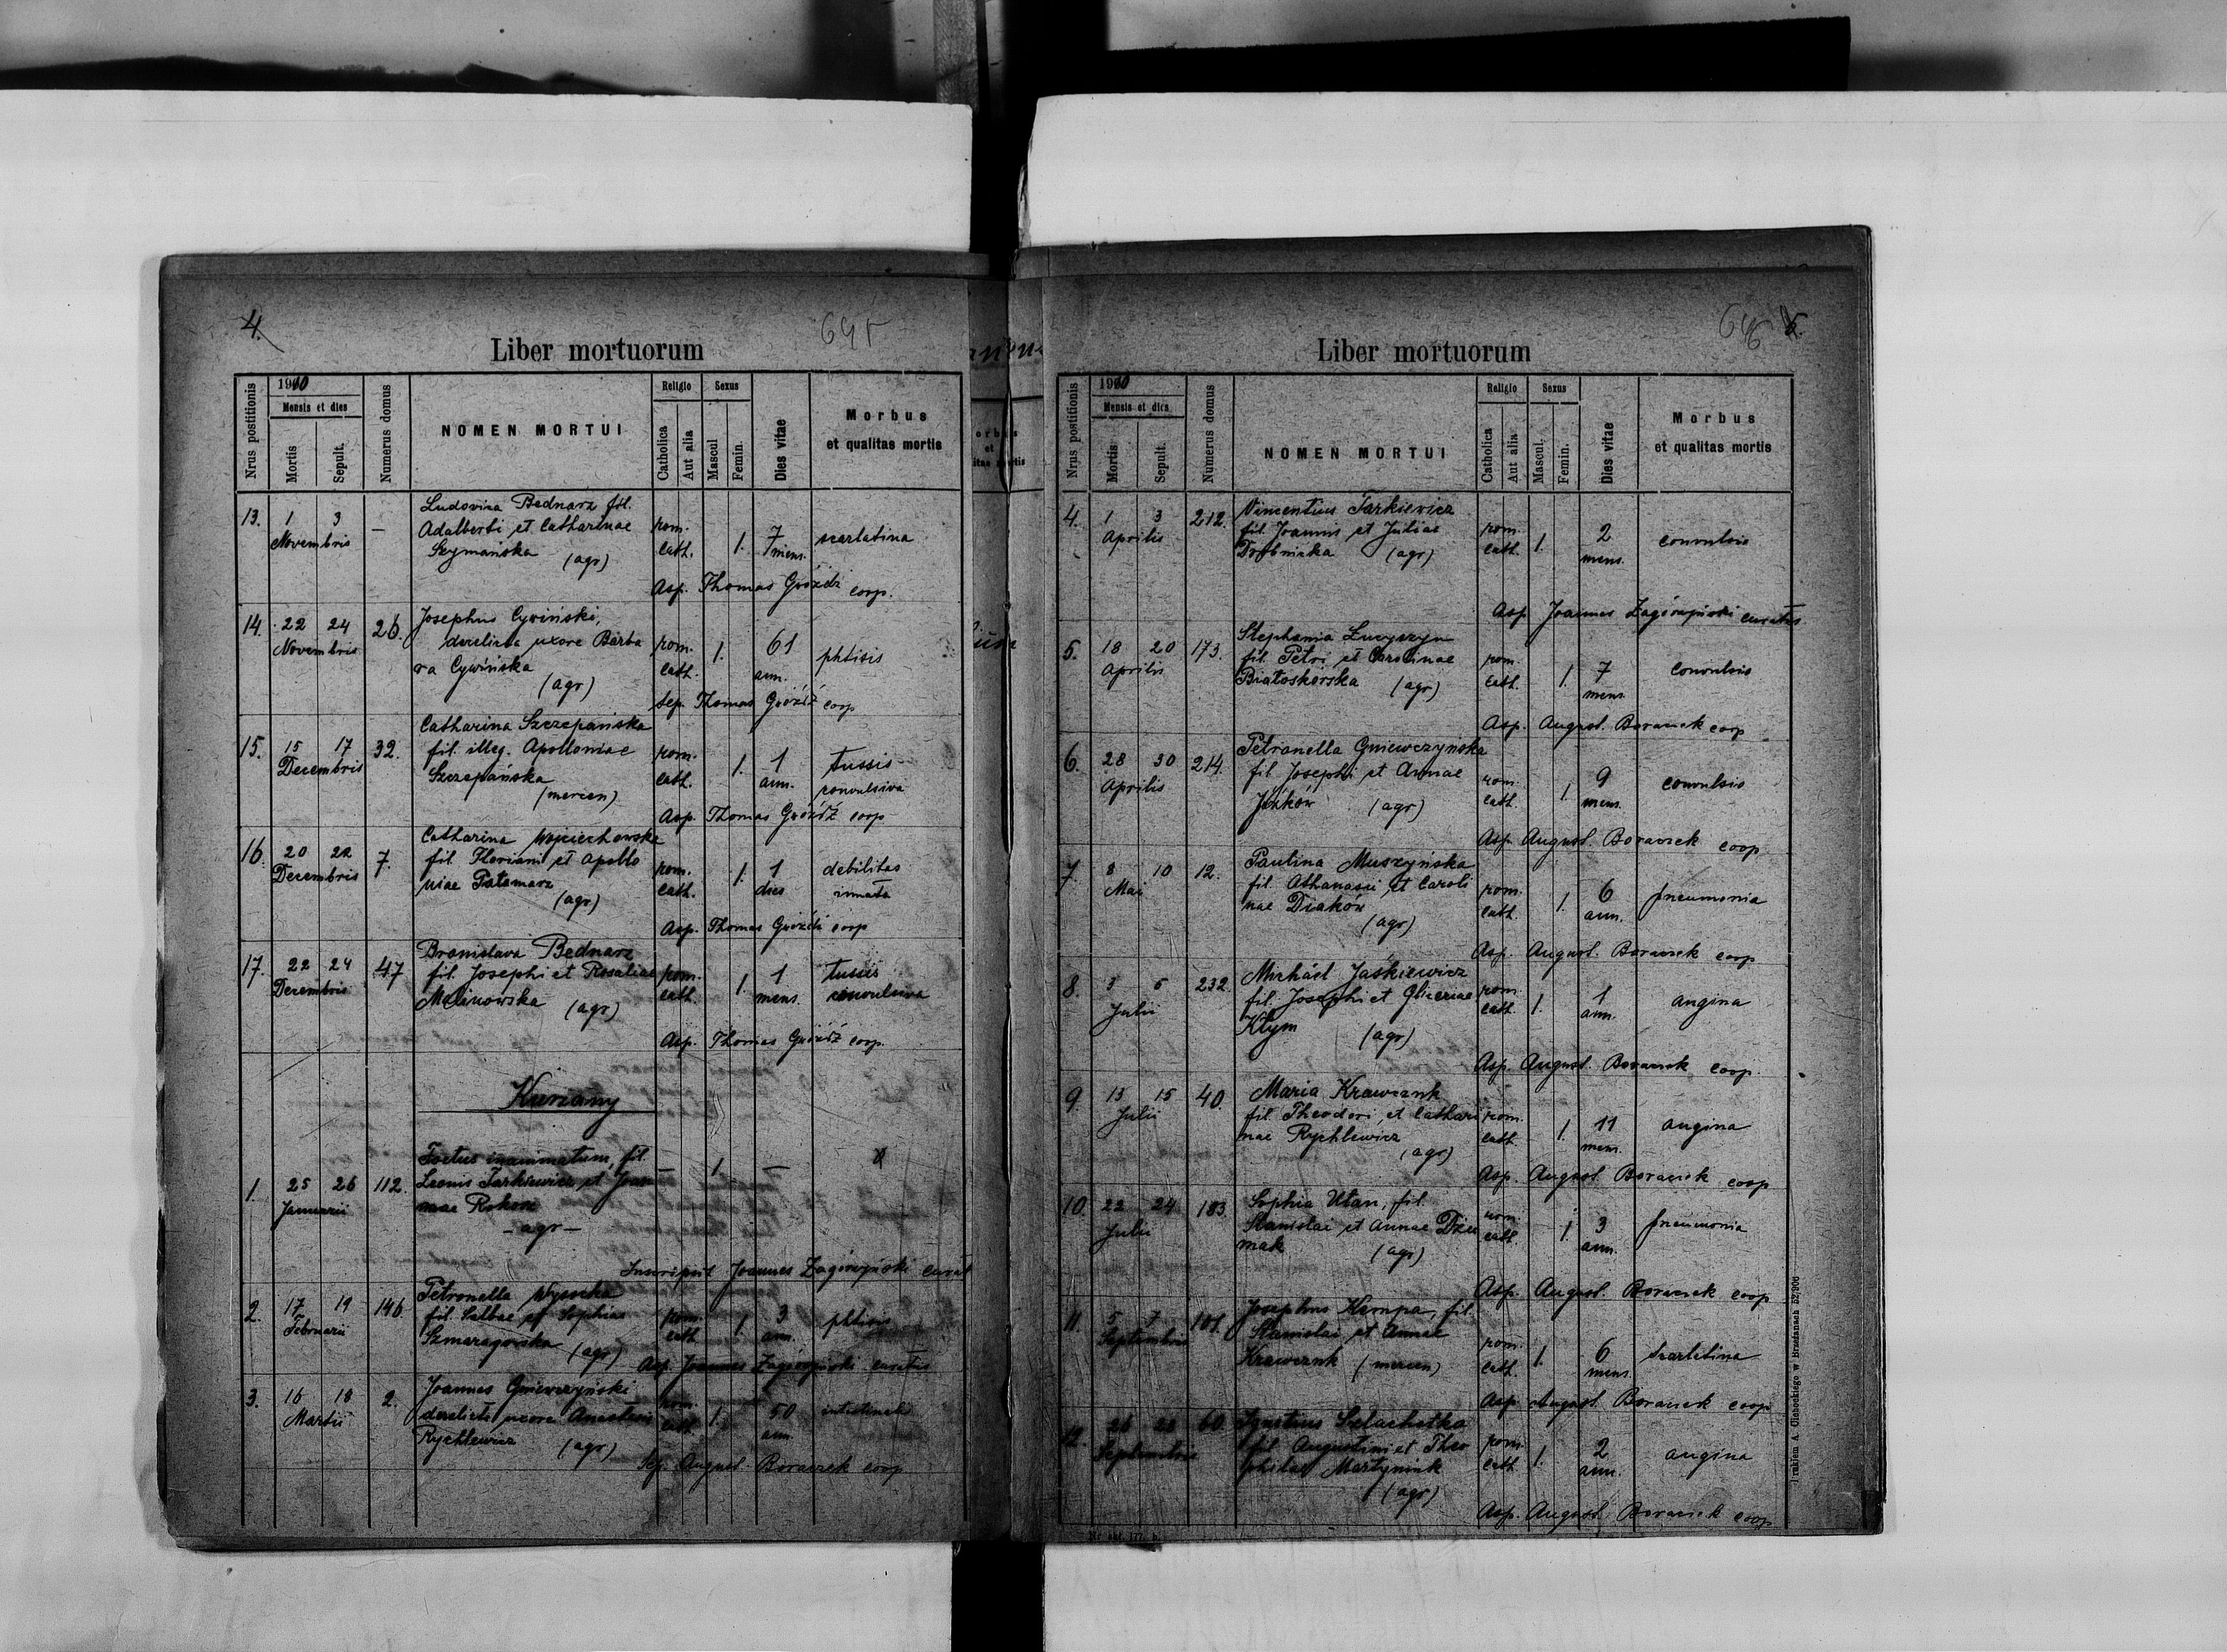 4.
695
Liber mortuorum
Nrus postitionis
1910
Mensis et dies
Mortis
Sepult.
Numerus domus
NOMEN MORTUI
Religio
Catholica
Aut alia
Sexus
Mascul
Femin.
Dies vitae
Morbus
et qualitas mortis
13. 1 3 —
Novembris
Ludovica Bednarz fil.
Adalberti et Catharinae
Szymańska (agr)
rom.
cath.
1. 7
mens.
scarlatina
Asp. Thomas Gwóźdź coop.
14. 22 24 26.
Novembris
Josephus Cywiński,
derelicta uxore Barba
ra Cywińska
(agr)
rom.
cath.
1. 61
ann.
phtisis
Sep. Thomas Gwóźdź coop
15. 15 17 32.
Decembris
Catharina Szczepańska
fil. illeg. Apolloniae
Szczepańska
(mercen)
rom.
cath.
1. 1
ann.
tussis
convulsiva
Asp. Thomas Gwóźdź coop
16. 20 22 7.
Decembris
Catharina Wojciechowska
fil. Floriani et Apollo
niae Patamarz
(agr)
rom.
cath.
1. 1
dies
debilitas
innata
Asp. Thomas Gwóźdź coop
17. 22 24 47
Decembris
Bronislava Bednarz
fil. Josephi et Rosaliae
Malinowska (agr)
rom.
cath.
1. 1
mens.
tussis
convulsiva
Asp. Thomas Gwóźdź coop.
Kuriany
1. 25 26 112.
Januarii
Foetus inanimatum, fil.
Leonis Tarkiewicz et Joan
nae Rokosz
- agr -
— 1. —
Inscripsit Joannes Zagórzyński curat
2. 17 19 146
Februarii
Petronella Wysocka
fil. Sabbae et Sophiae
Szmaragowska (agr)
rom.
cath
1. 3
ann.
phtisis
Asp. Joannes Zagórzyński curatus
3. 16 18 2.
Martii
Joannes Gniewczyński
derelicta uxore
Rychlewicz (agr)
rom.
cath.
1. 50
ann.
Sep. August. Boraczek coop
646 5.
Liber mortuorum
Nrus postitionis
1910
Mensis et dies
Mortis
Sepult.
Numerus domus
NOMEN MORTUI
Religio
Catholica
Aut alia
Sexus
Mascul.
Femin.
Dies vitae
Morbus
et qualitas mortis
4. 1 3 212.
Aprilis
Vincentius Tarkiewicz
fil. Joannis et Juliae
Drobnicka (agr)
rom.
cath.
1. 2
mens.
convulsio
Asp. Joannes Zagórzyński curatus
5. 18 20 173.
Aprilis
Stephania Łucyszyn
fil. Petri et Carolinae
Białoskórska (agr)
rom.
cath.
1. 7
mens
convulsio
Asp. August. Boraczek coop
6. 28 30 214.
Aprilis
Petronella Gniewczyńska
fil. Josephi et Annae
Jaśków (agr)
rom.
cath.
1. 9
mens.
convulsio
Asp. August. Boraczek coop
7. 8 10 12.
Mai
Paulina Muszyńska
fil. Athanasii et Caroli
nae Diaków
(agr)
rom.
cath.
1. 6
ann.
pneumonia
Asp. August. Boraczek coop
8. 3 5 232.
Julii
Michaël Jaśkiewicz
fil. Josephi et Gliceriae
Kłym (agr)
rom.
cath.
1. 1
ann.
angina
Asp. August. Boraczek coop.
9. 13 15 40.
Julii
Maria Krawczuk
fil. Theodori et Cathari
nae Rychlewicz
(agr)
rom.
cath.
1. 11
mens.
angina
Asp. August. Boraczek coop
10. 22 24 183.
Julii
Sophia Ułan, fil.
Stanislai et Annae Dżu
mak (agr)
rom.
cath.
1. 3
ann.
pneumonia
Asp. August. Boraczek coop
11. 5 7 101.
Septembris
Josephus Kempa, fil.
Stanislai et Annae
Krawczuk (mercen)
rom.
cath.
1. 6
mens.
scarlatina
Asp. August. Boraczek coop
12. 26 28 60.
Septembris
Ignatius Szlachetka
fil. Augustini et Theo
philae Martyniuk
(agr)
rom.
cath
1. 2
ann.
angina
Asp. August. Boraczek coop
Drukiem A. Głabockiego w Brzeżanach 52/906